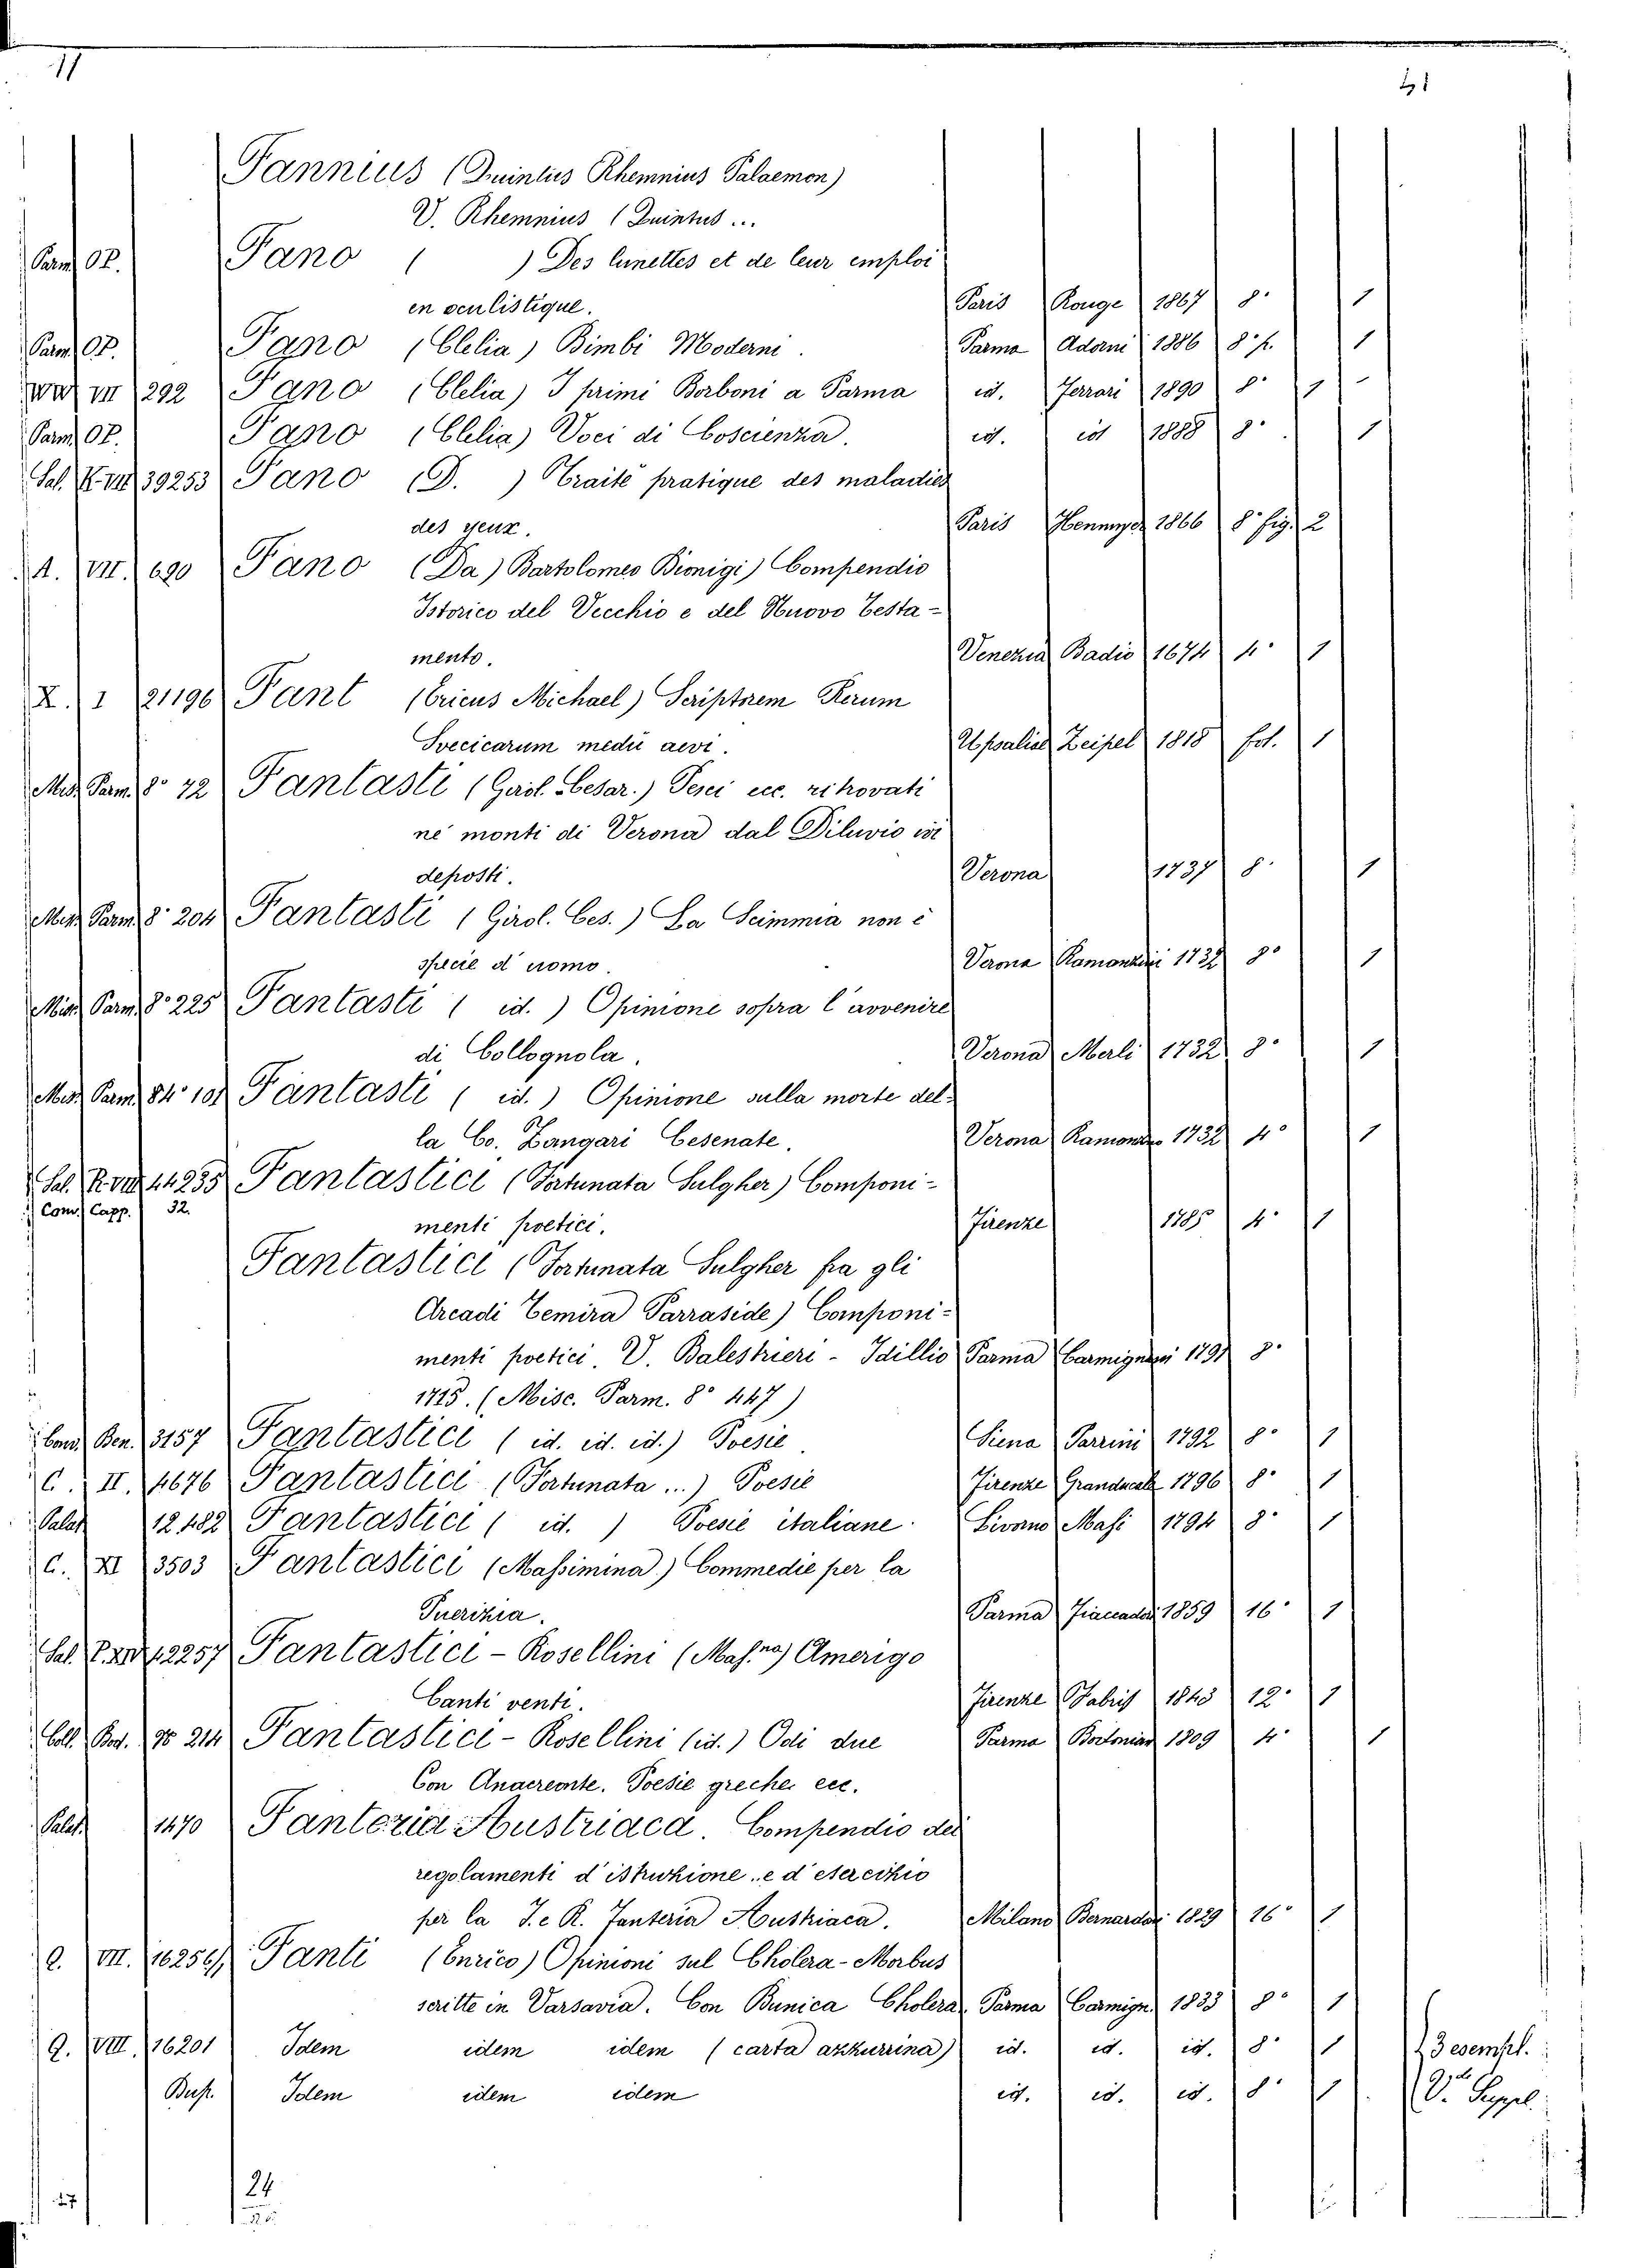 11
41
Fannius (Quintus Rhemnius Palaemon)
V. Rhemnius (Quintus ...
Parm. OP. Fano ( ) Des lunettes et de leur emploi
en oculistique. Paris Rouge 1867 8° 1
Parm. OP. Fano (Clelia) Bimbi Moderni. Parma Adorni 1886 8° p. 1
VII 292 Fano (Clelia) I primi Borboni a Parma id. Ferrari 1890 8° 1
Parm. OP. Fano (Clelia) Voci di Coscienza. id. id 1888 8° 1
Sal. K. VIII 39253 Fano (D. ) Traité pratique des maladies
des yeux. Paris Hennuyer 1866 8° fig. 2
A. VII. 690 Fano (Da) Bartolomeo Dionigi) Compendio
Istorico del Vecchio e del Nuovo Testa-
mento. Venezia Badio 1674 4° 1
X. I 21196 Fant (Ericus Michael) Scriptorem Rerum
Svecicarum medii aevi. Upsaliae Zeipel 1818 fol. 1
Misc. Parm. 8° 72 Fantasti (Girol. Cesar.) Pesci ecc. ritrovati
ne' monti di Verona dal Diluvio ivi
deposti. Verona 1737 8° 1
Misc. Parm. 8° 204 Fantasti (Girol. Ces.) La Scimmia non è
specie d'uomo. Verona Ramanzini 1732 8° 1
Misc. Parm. 8° 225 Fantasti ( id. ) Opinione sopra l'avvenire
di Collognola. Verona Merli 1732 8° 1
Misc. Parm. 84° 101 Fantasti ( id. ) Opinione sulla morte del-
la Co. Zangari Cesenate. Verona 1732 4° 1
Sal. 44235 Fantastici (Fortunata Sulgher) Componi-
Com. Capp. 32. menti poetici. Firenze 1785 4° 1
Fantastici (Fortunata Sulgher fra gli
Arcadi Temira Parraside) Componi-
menti poetici. V. Balestrieri - Idillio Parma Carmignani 1791 8°
1715. (Misc. Parm. 8° 447)
Ben. 3157 Fantastici ( id. id. id.) Poesie. Siena Parrini 1792 8° 1
C. II. 4676 Fantastici (Fortunata ...) Poesie Firenze Granducale 1796 8° 1
Palat. 12482 Fantastici ( id. ) Poesie italiane. Livorno Masi 1794 8° 1
C. XI 3503 Fantastici (Massimina) Commedie per la
Puerizia. Parma Fiaccadori 1859 16° 1
Sal. 42257 Fantastici - Rosellini (Mass.na) Amerigo
Canti venti. Firenze Fabris 1843 12° 1
Coll. Bod. 214 Fantastici - Rosellini (id.) Odi due Parma Bodoniano 1809 4° 1
Con Anacreonte. Poesie greche. ecc.
Palat. 1470 Fanteria Austriaca. Compendio dei
regolamenti d'istruzione..e d'esercizio
per la I. e R. Fanteria Austriaca. Milano Bernardoni 1829 16° 1
Q. VII. 16256/1 Fanti (Enrico) Opinioni sul Cholera-Morbus
scritte in Varsavia. Con Bunica Cholera. Parma Carmign. 1833 8° 1
Q. VIII. 16201 Idem idem idem (carta azzurrina) id. id. id. 8° 1 3 esempl.
Busp. Idem idem idem id. id. id. 8° 1 V. Suppl.
27
24